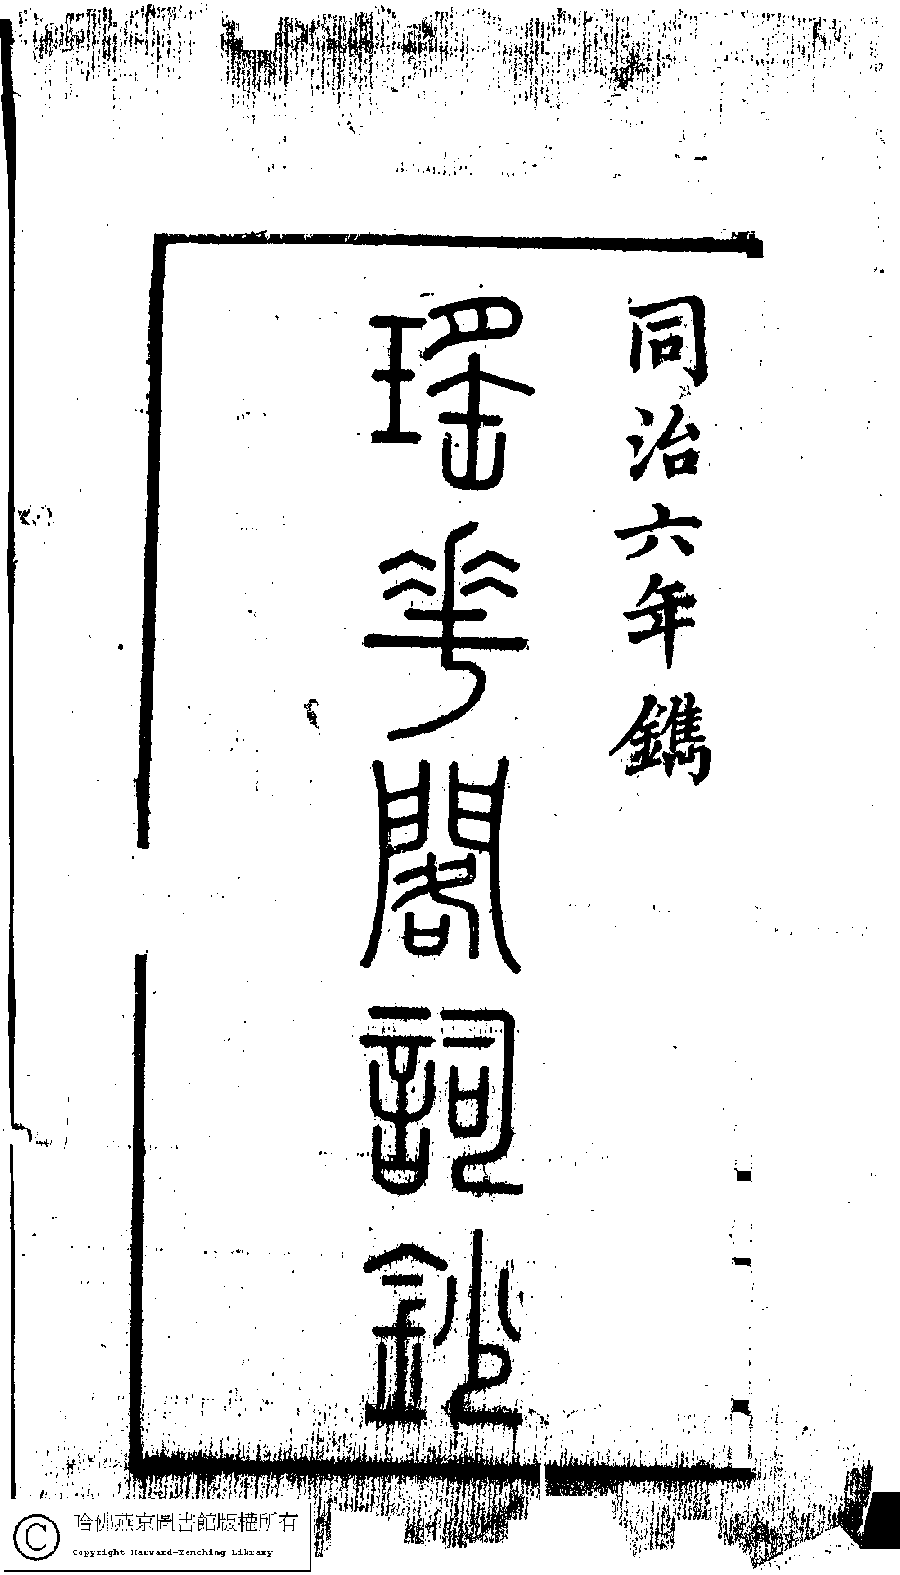 同治六年鐫
瑤華閣詞鈔
哈佛燕京圖書館版權所有
Copyright Harvard-Yenching Library